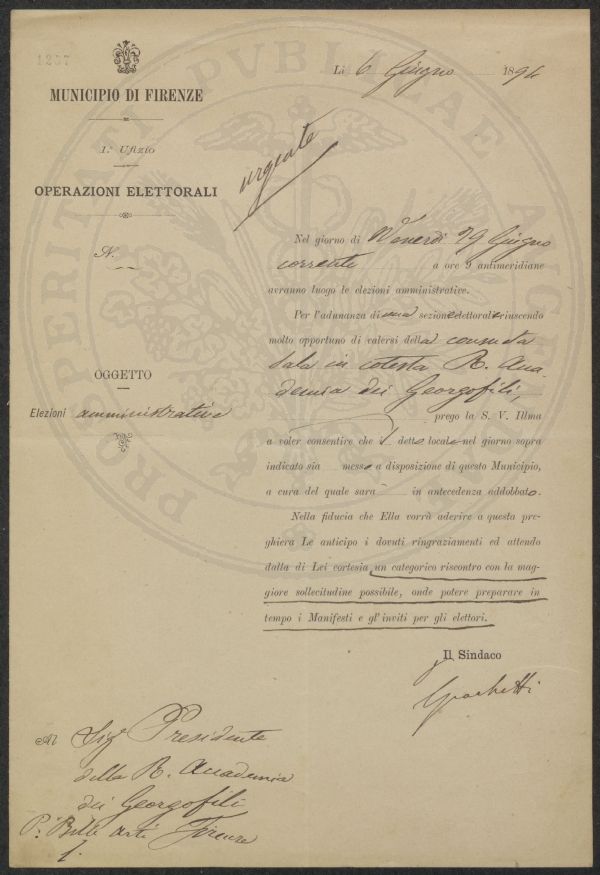 1257
MUNICIPIO DI FIRENZE
1.° Ufizio
OPERAZIONI ELETTORALI
N.
OGGETTO
Elezioni amministrative
Lì 6 Giugno 1894
urgente
Nel giorno di Venerdì 29 Giugno
corrente a ore 9 antimeridiane
avranno luogo le elezioni amministrative.
Per l'adunanza di una sezione elettorale riuscendo
molto opportuno di valersi della consueta
sala in cotesta R. Acca-
demia dei Georgofili,
prego la S. V. Illma
a voler consentire che il detto locale nel giorno sopra
indicato sia messo a disposizione di questo Municipio,
a cura del quale sarà in antecedenza addobbato.
Nella fiducia che Ella vorrà aderire a questa pre-
ghiera Le anticipo i dovuti ringraziamenti ed attendo
dalla di Lei cortesia un categorico riscontro con la mag-
giore sollecitudine possibile, onde potere preparare in
tempo i Manifesti e gl'inviti per gli elettori.
Il Sindaco
Al Sig.r Presidente
della R. Accademia
dei Georgofili
P. Belle Arti Firenze
1.
PROSPERITATI PVBLICAE AVGENDAE